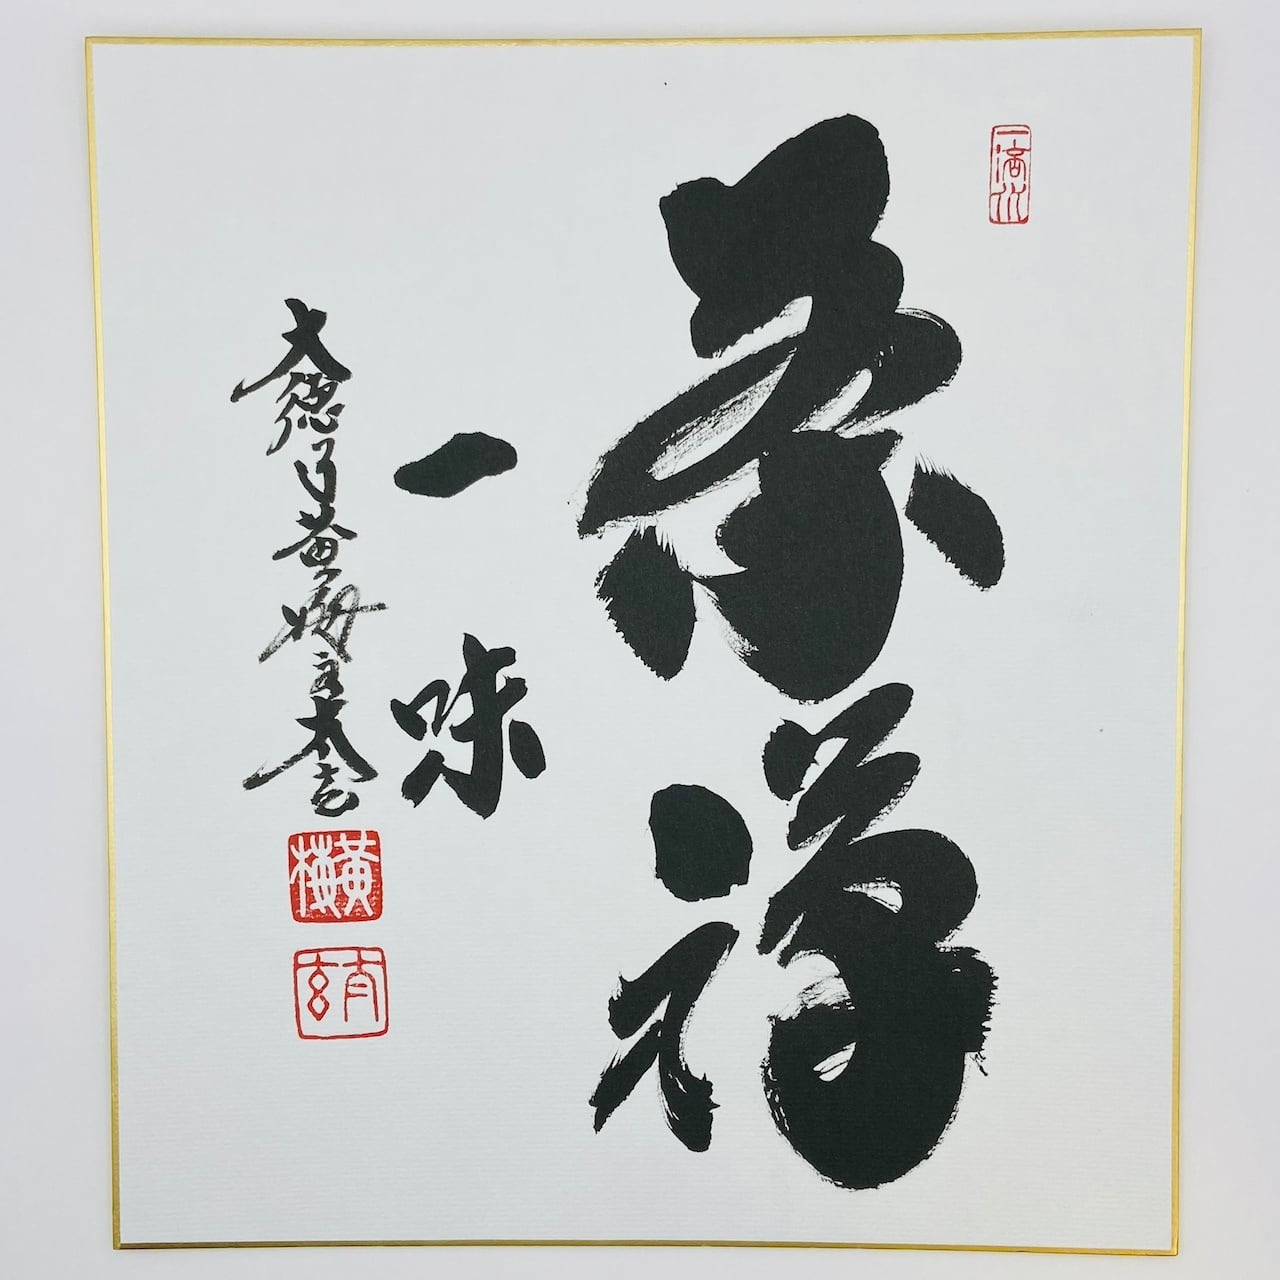 一滴水
茶禅
一味
大徳寺黄梅主太玄
黄梅
太玄